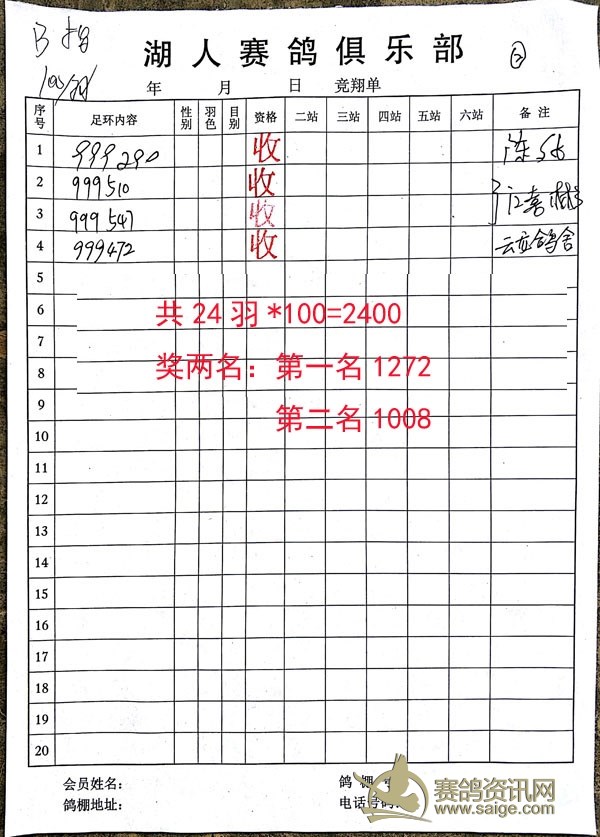 B 指
湖人赛鸽俱乐部 ②
100/羽
年 月 日 竞翔单
序号 足环内容 性别 羽色 目别 资格 二站 三站 四站 五站 六站 备注
1 999290 收
2 999510 收
3 999547 收
4 999472 收 鸽舍
5
6 共24羽*100=2400
7
8 奖两名：第一名1272
9 第二名1008
10
11
12
13
14
15
16
17
18
19
20
会员姓名： 鸽棚
鸽棚地址： 电话号码：
赛鸽资讯网
www.saige.com